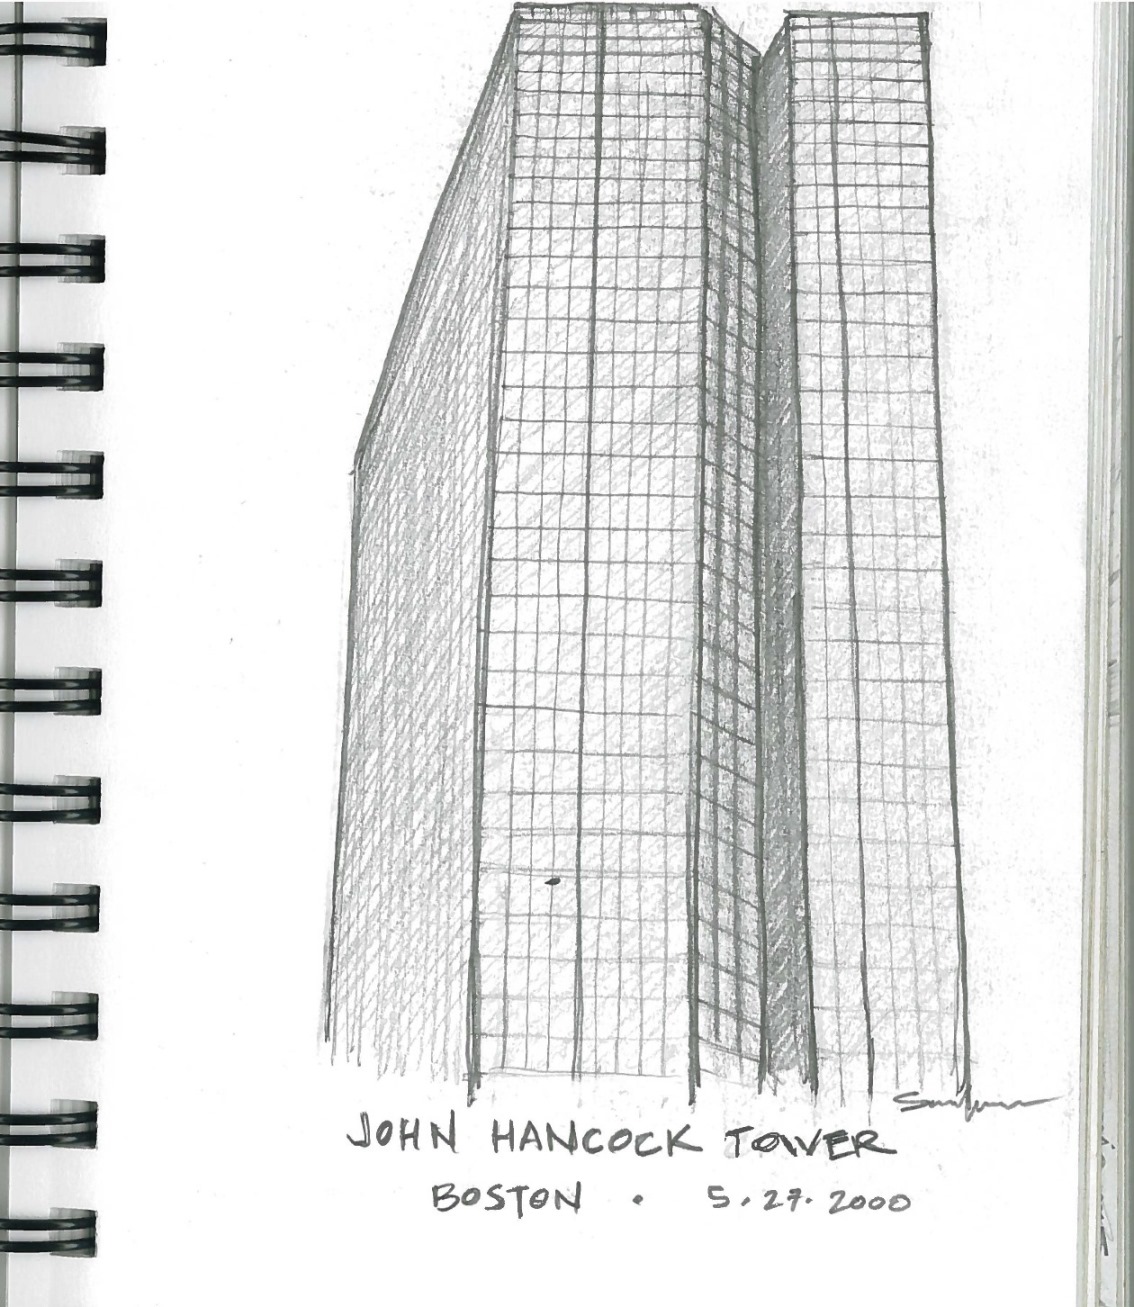 JOHN HANCOCK TOWER
BOSTON · 5.27.2000